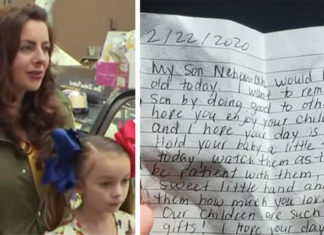 2/22/2020
My Son would
old today. want to rem
Son by doing good to othe
hope you enjoy your child
and I hope your day is
Hold your baby a little
today, watch them as t
be patient with them,
Sweet little hand an
them how much you lov
Our children are such
gifts! Hope your day